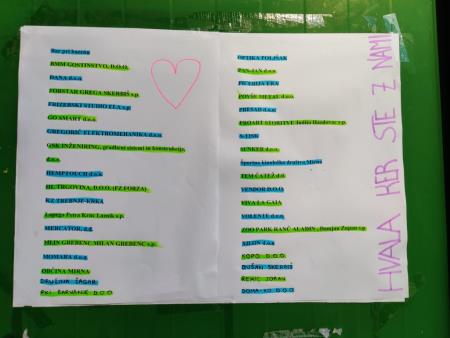 Bar pri bazenu
BMM GOSTINSTVO, D.O.O.
DANA d.o.o.
FORSTAR GREGA SKERBIŠ s.p.
FRIZERSKI STUDIO ELA s.p.
GO SMART d.o.o.
GREGORIČ ELEKTROMEHANIKA d.o.o.
GSK INŽENIRING, gradbeni sistemi in konstrukcije,
d.o.o.
HEMPTOUCH d.o.o.
HL TRGOVINA, D.O.O. (PZ FORZA)
KZ TREBNJE-KRKA
Petra Krnc Laznik s.p.
MERCATOR, d.d.
MLIN GREBENC MILAN GREBENC s.p.
MOMARA d.o.o.
OBČINA MIRNA
DRUŽINA ŠAGAR
PKI BARVANJE D.O.O.
OPTIKA POLJŠAK
PAN-JAN d.o.o.
POVŠE METAL d.o.o.
PRESAD d.o.o.
PROART STORITVE s.p.
SUNKER d.o.o.
Športno kinološko društvo Mirna
TEM ČATEŽ d.d.
VENDOR D.O.O.
VIVA LA GAIA
VOLENTE d.o.o.
ZOO PARK RANČ ALADIN, Damjan Zupan s.p.
XILIN d.o.o.
KOPO D.O.O.
DUŠAN SKERBIŠ
REMIC ZORAN
DOMA-KO D.O.O.
HVALA KER STE Z NAMI